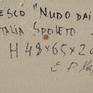 ESCO "NUDO DAI
TALIA SPOLETO
H 48x65x2
E. P.